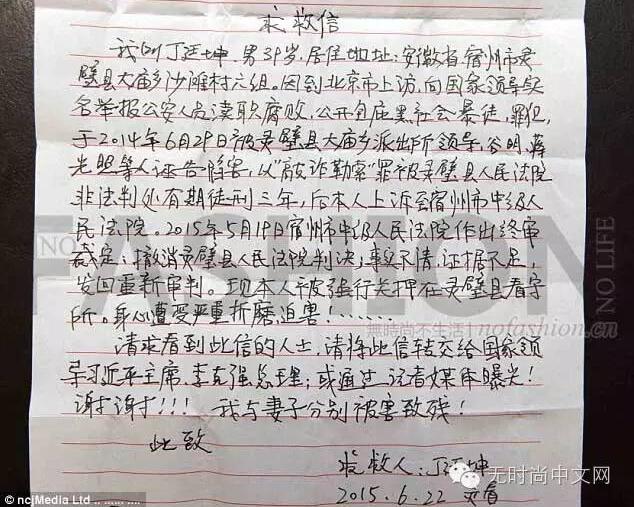 求救信
我叫丁廷坤,男39岁,居住地址:安徽省宿州市灵
璧县大庙乡沙滩村六组。因到北京市上访,向国家领导实
名举报公安人员渎职腐败,公开包庇黑社会暴徒,罪犯,
于2014年6月29日被灵璧县大庙乡派出所领导,谷明,蒋
光照等人诬告陷害,以"敲诈勒索"罪被灵璧县人民法院
非法判处有期徒刑三年,后本人上诉至宿州市中级人
民法院。2015年5月19日宿州市中级人民法院作出终审
裁定:撤消灵璧县人民法院判决,事实不清,证据不足,
发回重新审判。现本人被强行关押在灵璧县看守
所。身心遭受严重折磨迫害!……
请求看到此信的人士,请将此信转交给国家领
导习近平主席,李克强总理;或通过记者媒体曝光!
谢谢!!!我与妻子分别被害致残!
此致
求救人:丁廷坤
2015.6.22
NO FASHION
NO LIFE
無時尚不生活 nofashion.cn
无时尚中文网
© ncjMedia Ltd